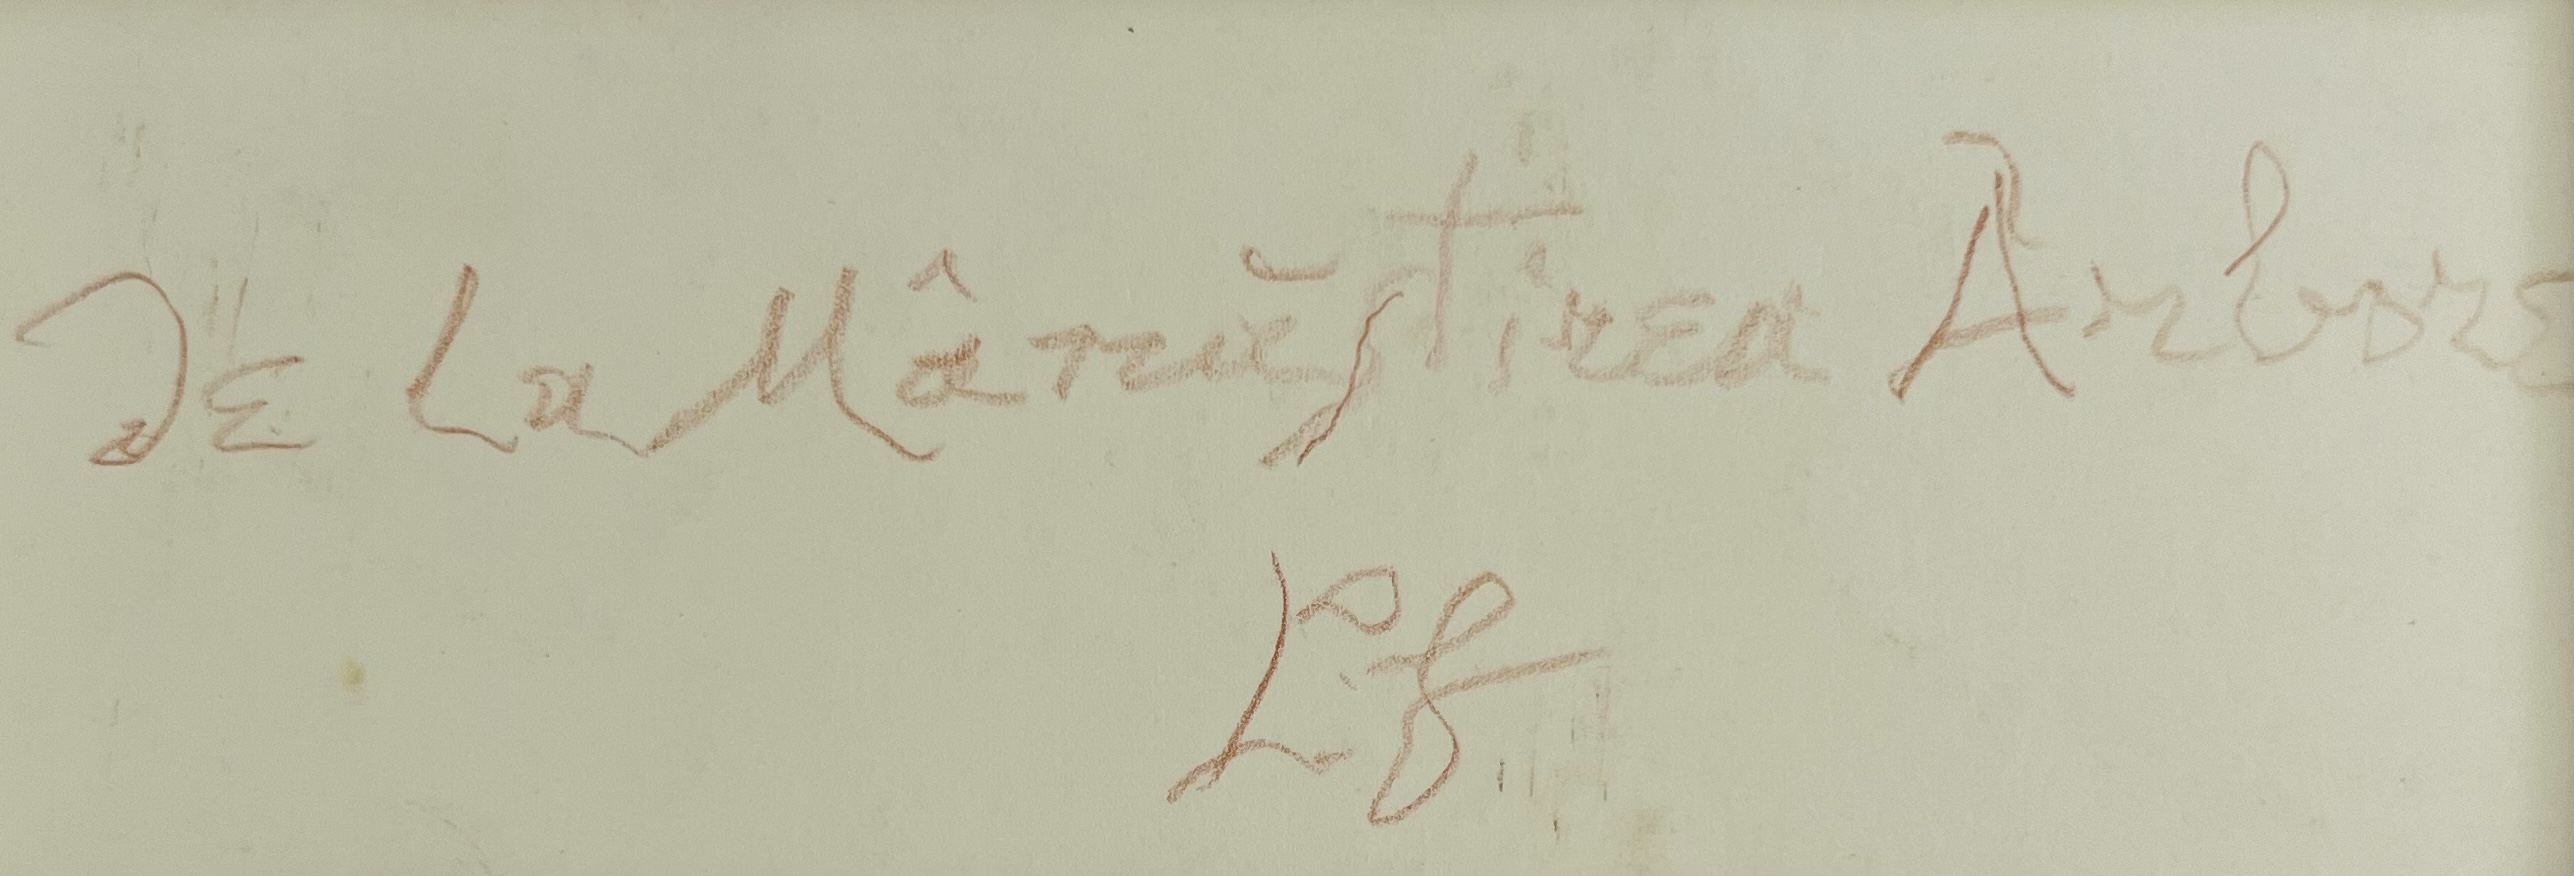 De La Mânăstirea Arbore
Lf